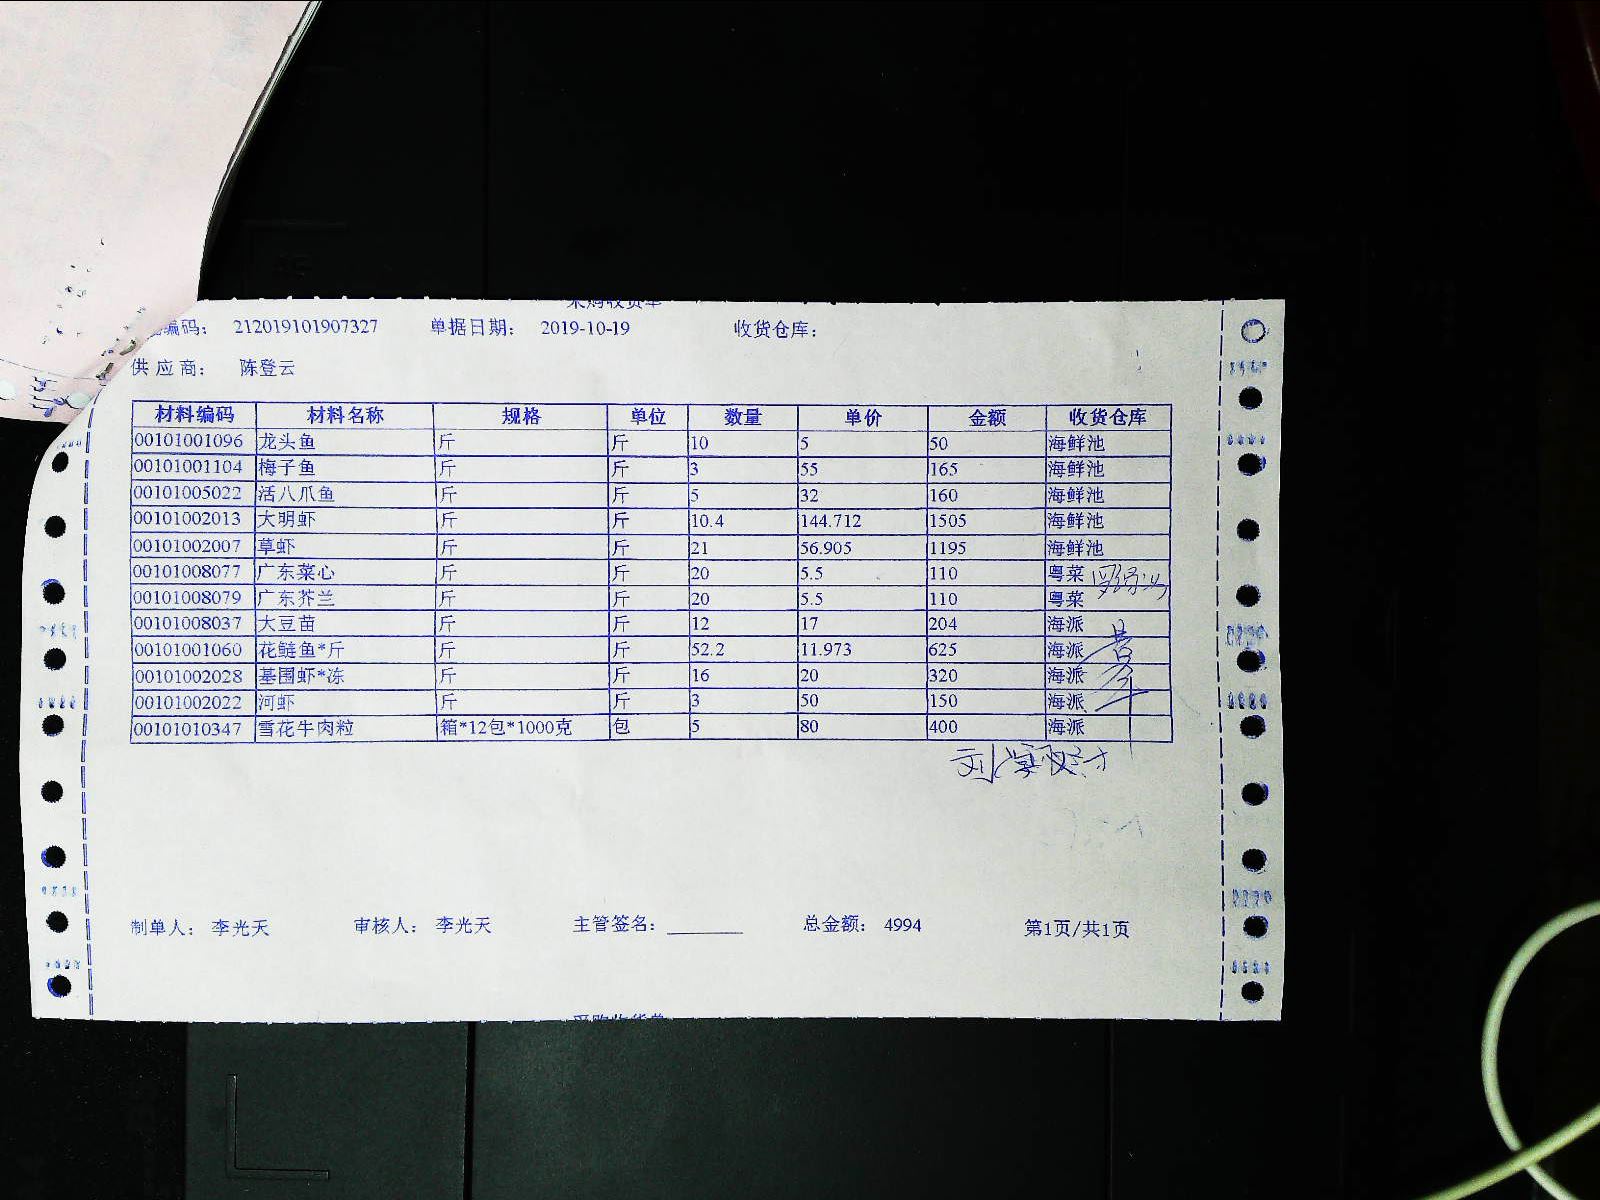 采购收货单
编码： 212019101907327 单据日期： 2019-10-19 收货仓库：
供应商： 陈登云
材料编码 材料名称 规格 单位 数量 单价 金额 收货仓库
00101001096 龙头鱼 斤 斤 10 5 50 海鲜池
00101001104 梅子鱼 斤 斤 3 55 165 海鲜池
00101005022 活八爪鱼 斤 斤 5 32 160 海鲜池
00101002013 大明虾 斤 斤 10.4 144.712 1505 海鲜池
00101002007 草虾 斤 斤 21 56.905 1195 海鲜池
00101008077 广东菜心 斤 斤 20 5.5 110 粤菜
00101008079 广东芥兰 斤 斤 20 5.5 110 粤菜
00101008037 大豆苗 斤 斤 12 17 204 海派
00101001060 花鲢鱼*斤 斤 斤 52.2 11.973 625 海派
00101002028 基围虾*冻 斤 斤 16 20 320 海派
00101002022 河虾 斤 斤 3 50 150 海派
00101010347 雪花牛肉粒 箱*12包*1000克 包 5 80 400 海派
制单人： 李光天 审核人： 李光天 主管签名： 总金额： 4994 第1页/共1页
采购收货单